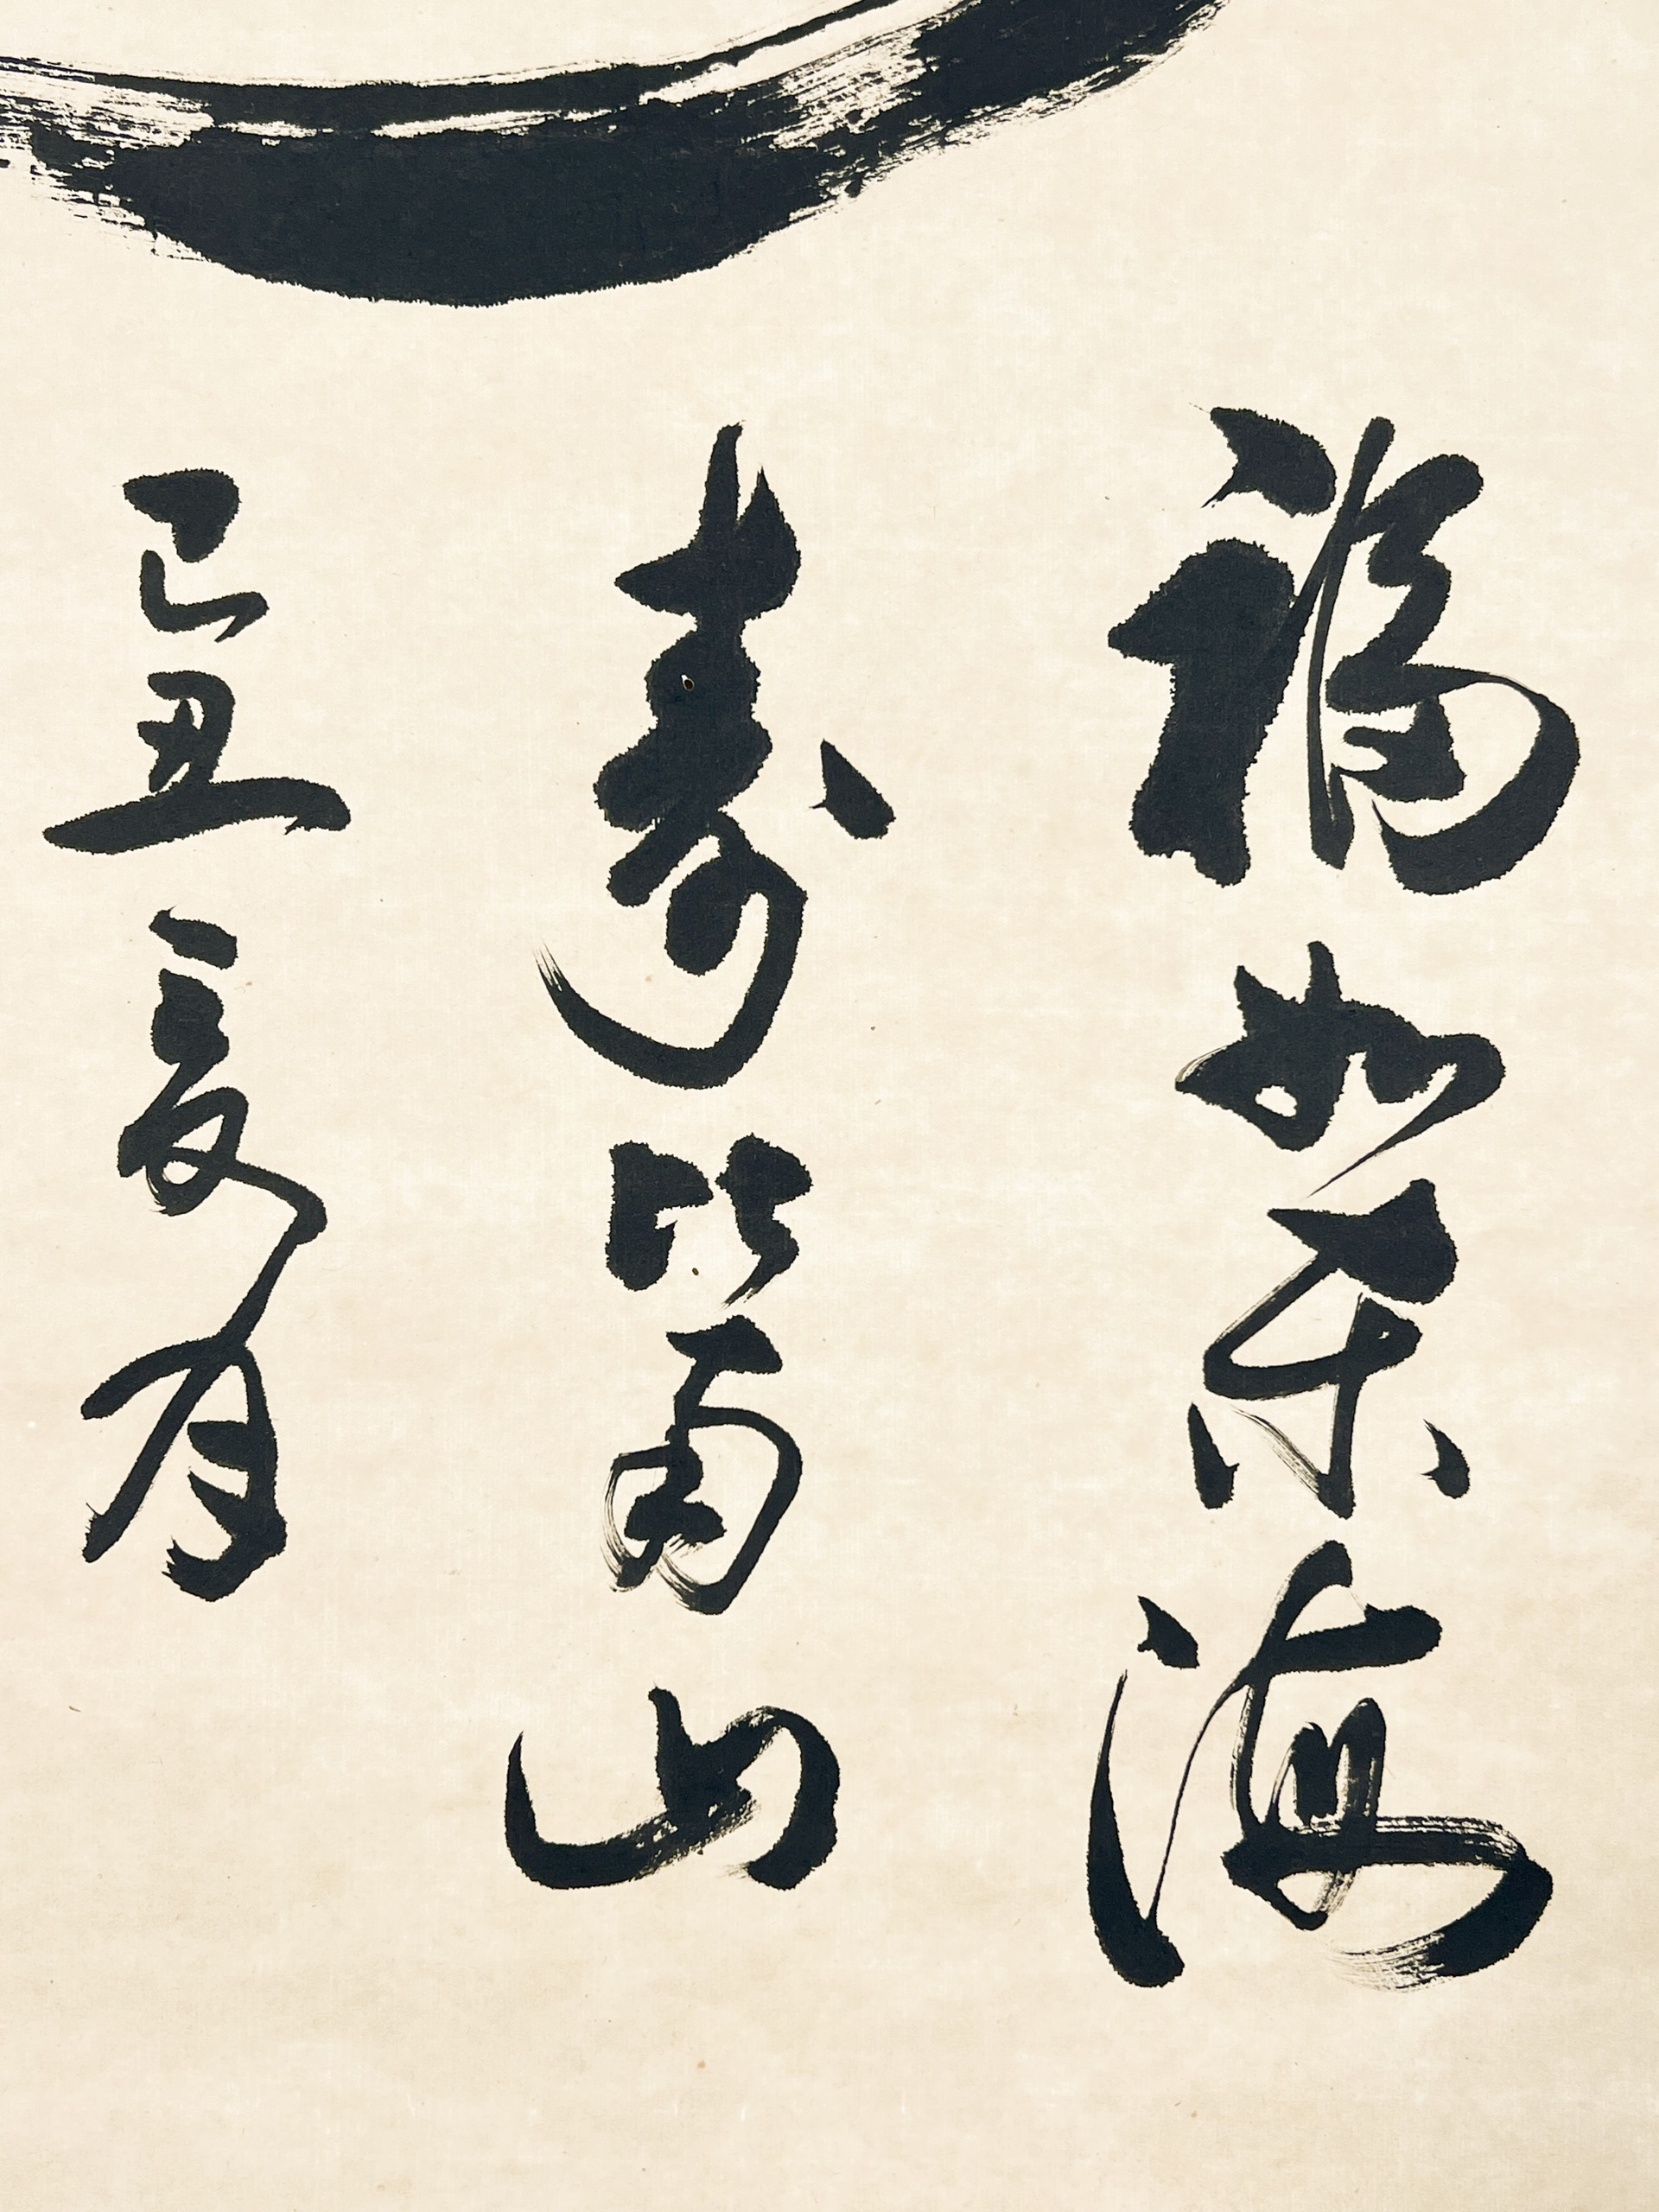 福如东海
寿比南山
己丑夏月